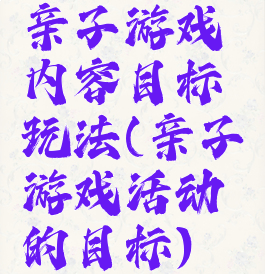 亲子游戏
内容目标
玩法(亲子
游戏活动
的目标)